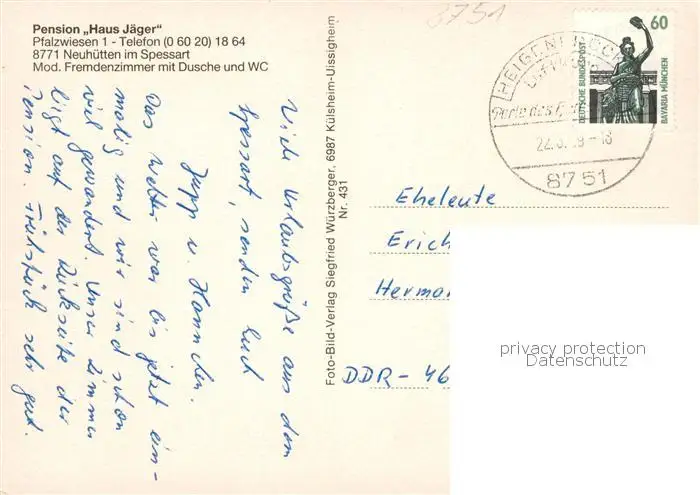 Pension „Haus Jäger"
Pfalzwiesen 1 - Telefon (0 60 20) 18 64
8771 Neuhütten im Spessart
Mod. Fremdenzimmer mit Dusche und WC
3751
HEIGENBRÜCKEN
Perle des
22.8. 9-18
8751
60
DEUTSCHE BUNDESPOST
BAVARIA MÜNCHEN
Viele Urlaubsgrüße aus dem
Spessart, senden Euch
Jupp u. Hannchen.
Das Wetter war bis jetzt ein-
malig und wir sind schon
viel gewandert. Unser Zimmer
ligt auf der Rückseite der
Pension. Frühstück sehr gut.
Foto-Bild-Verlag Siegfried Würzberger, 6987 Külsheim-Uissigheim
Nr. 431
Eheleute
Erich
Herman
DDR - 46
privacy protection
Datenschutz